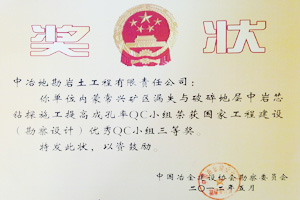 奖状
中冶地勘岩土工程有限责任公司：
你单位内蒙常兴矿区漏失与破碎地层中岩芯
钻探施工提高成孔率QC小组荣获国家工程建设
（勘察设计）优秀QC小组三等奖。
特发此状，以资鼓励。
中国冶金建设协会勘察委员会
二〇一二年五月